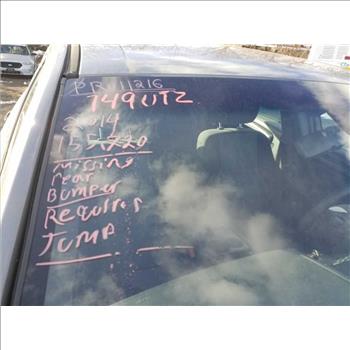 PR 11216
749UTZ
2014
155220
missing
rear
Bumper
Requires
Jump